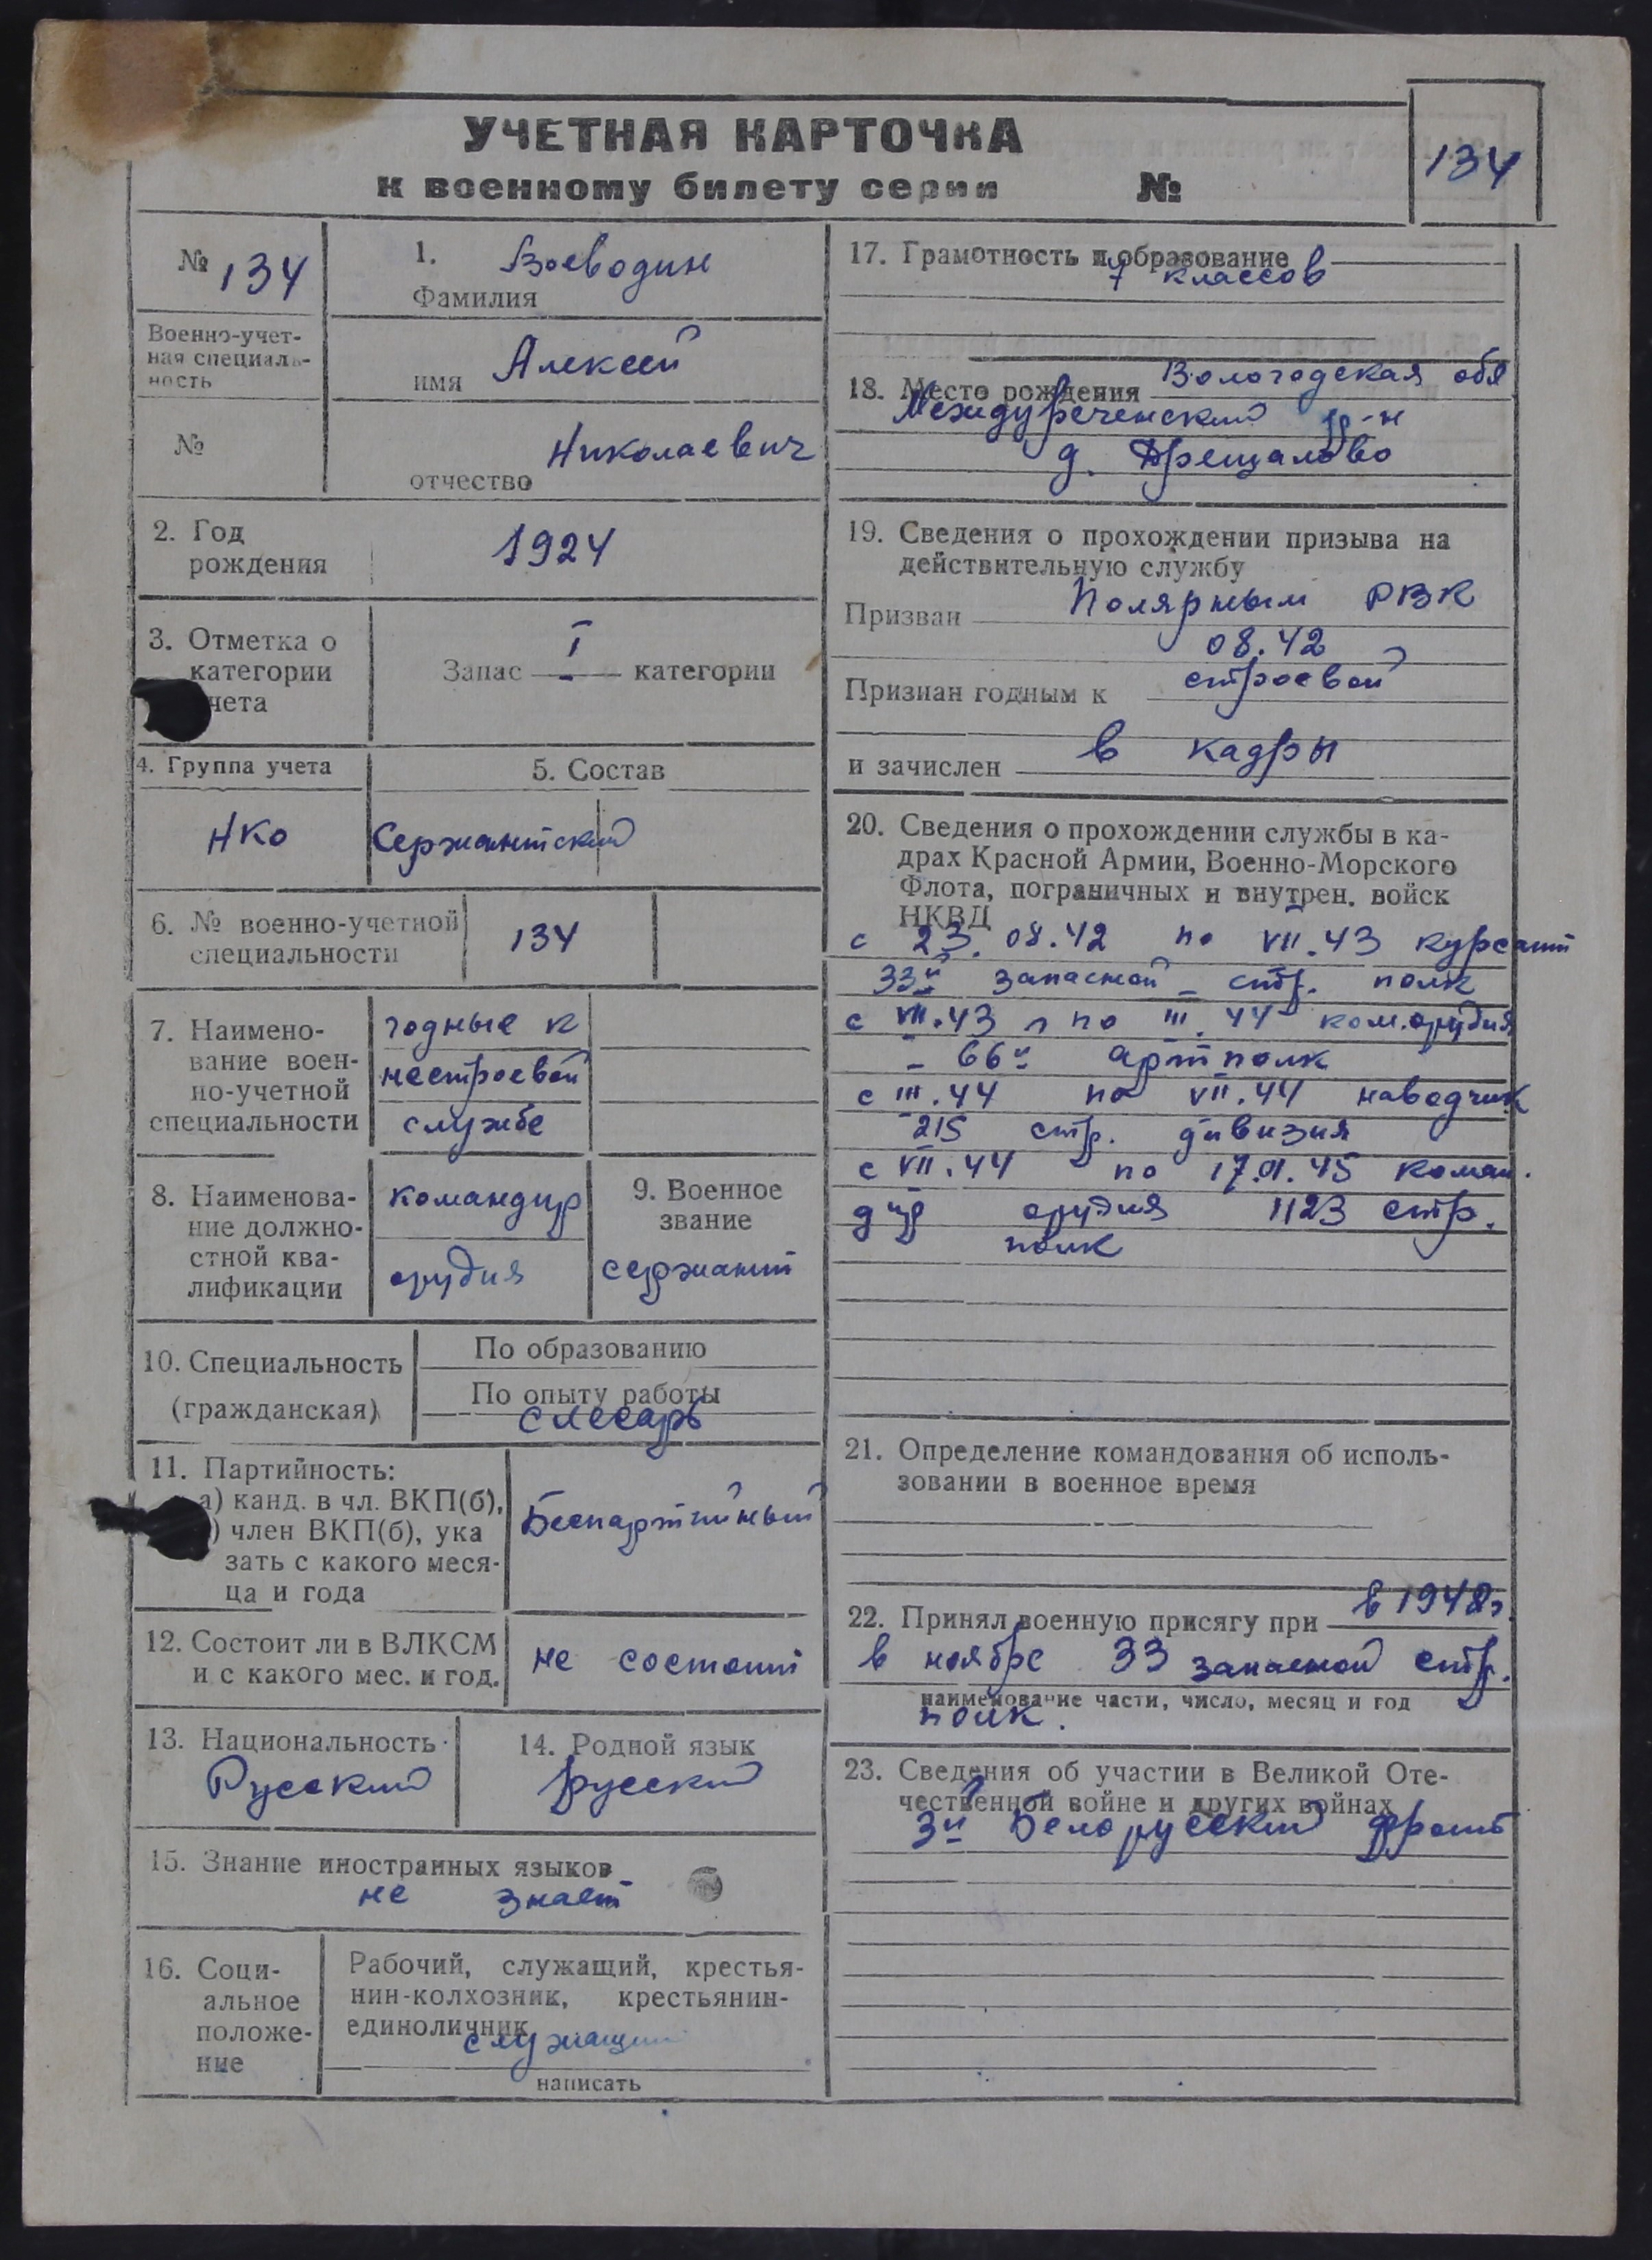 УЧЕТНАЯ КАРТОЧКА
к военному билету серии №
134
№ 134
1. Воеводин
Фамилия
Военно-учет-
ная специаль-
ность
имя Алексей
№
отчество Николаевич
2. Год
рождения
1924
3. Отметка о
категории
чета
Запас I категории
4. Группа учета
НКО
5. Состав
Сержантский
6. № военно-учетной
специальности
134
7. Наимено-
вание воен-
но-учетной
специальности
годные к
нестроевой
службе
8. Наименова-
ние должно-
стной ква-
лификации
командир
орудия
9. Военное
звание
сержант
10. Специальность
(гражданская)
По образованию
По опыту работы
слесарь
11. Партийность:
а) канд. в чл. ВКП(б),
) член ВКП(б), ука
зать с какого меся-
ца и года
Беспартийный
12. Состоит ли в ВЛКСМ
и с какого мес. и год.
не состоит
13. Национальность
Русский
14. Родной язык
русский
15. Знание иностранных языков
не знает
16. Соци-
альное
положе-
ние
Рабочий, служащий, крестья-
нин-колхозник, крестьянин-
единоличник
служащий
написать
17. Грамотность и образование
7 классов
18. Место рождения Вологодская обл
Междуреченский р-н
д.
19. Сведения о прохождении призыва на
действительную службу
Призван Полярным РВК
08.42
Признан годным к строевой
и зачислен в кадры
20. Сведения о прохождении службы в ка-
драх Красной Армии, Военно-Морского
Флота, пограничных и внутрен. войск
НКВД
с 23.08.42 по VII.43 курсант
33й запасной стр. полк
с VII.43 по III.44 ком.орудия
66й артполк
с III.44 по VII.44 наводчик
215 стр. дивизия
с VII.44 по 17.01.45 коман.
дир орудия 1123 стр.
полк
21. Определение командования об исполь-
зовании в военное время
22. Принял военную присягу при в 1942г.
в ноябре 33 запасной стр.
наименование части, число, месяц и год
полк.
23. Сведения об участии в Великой Оте-
чественной войне и других войнах
3й Белорусский фронт